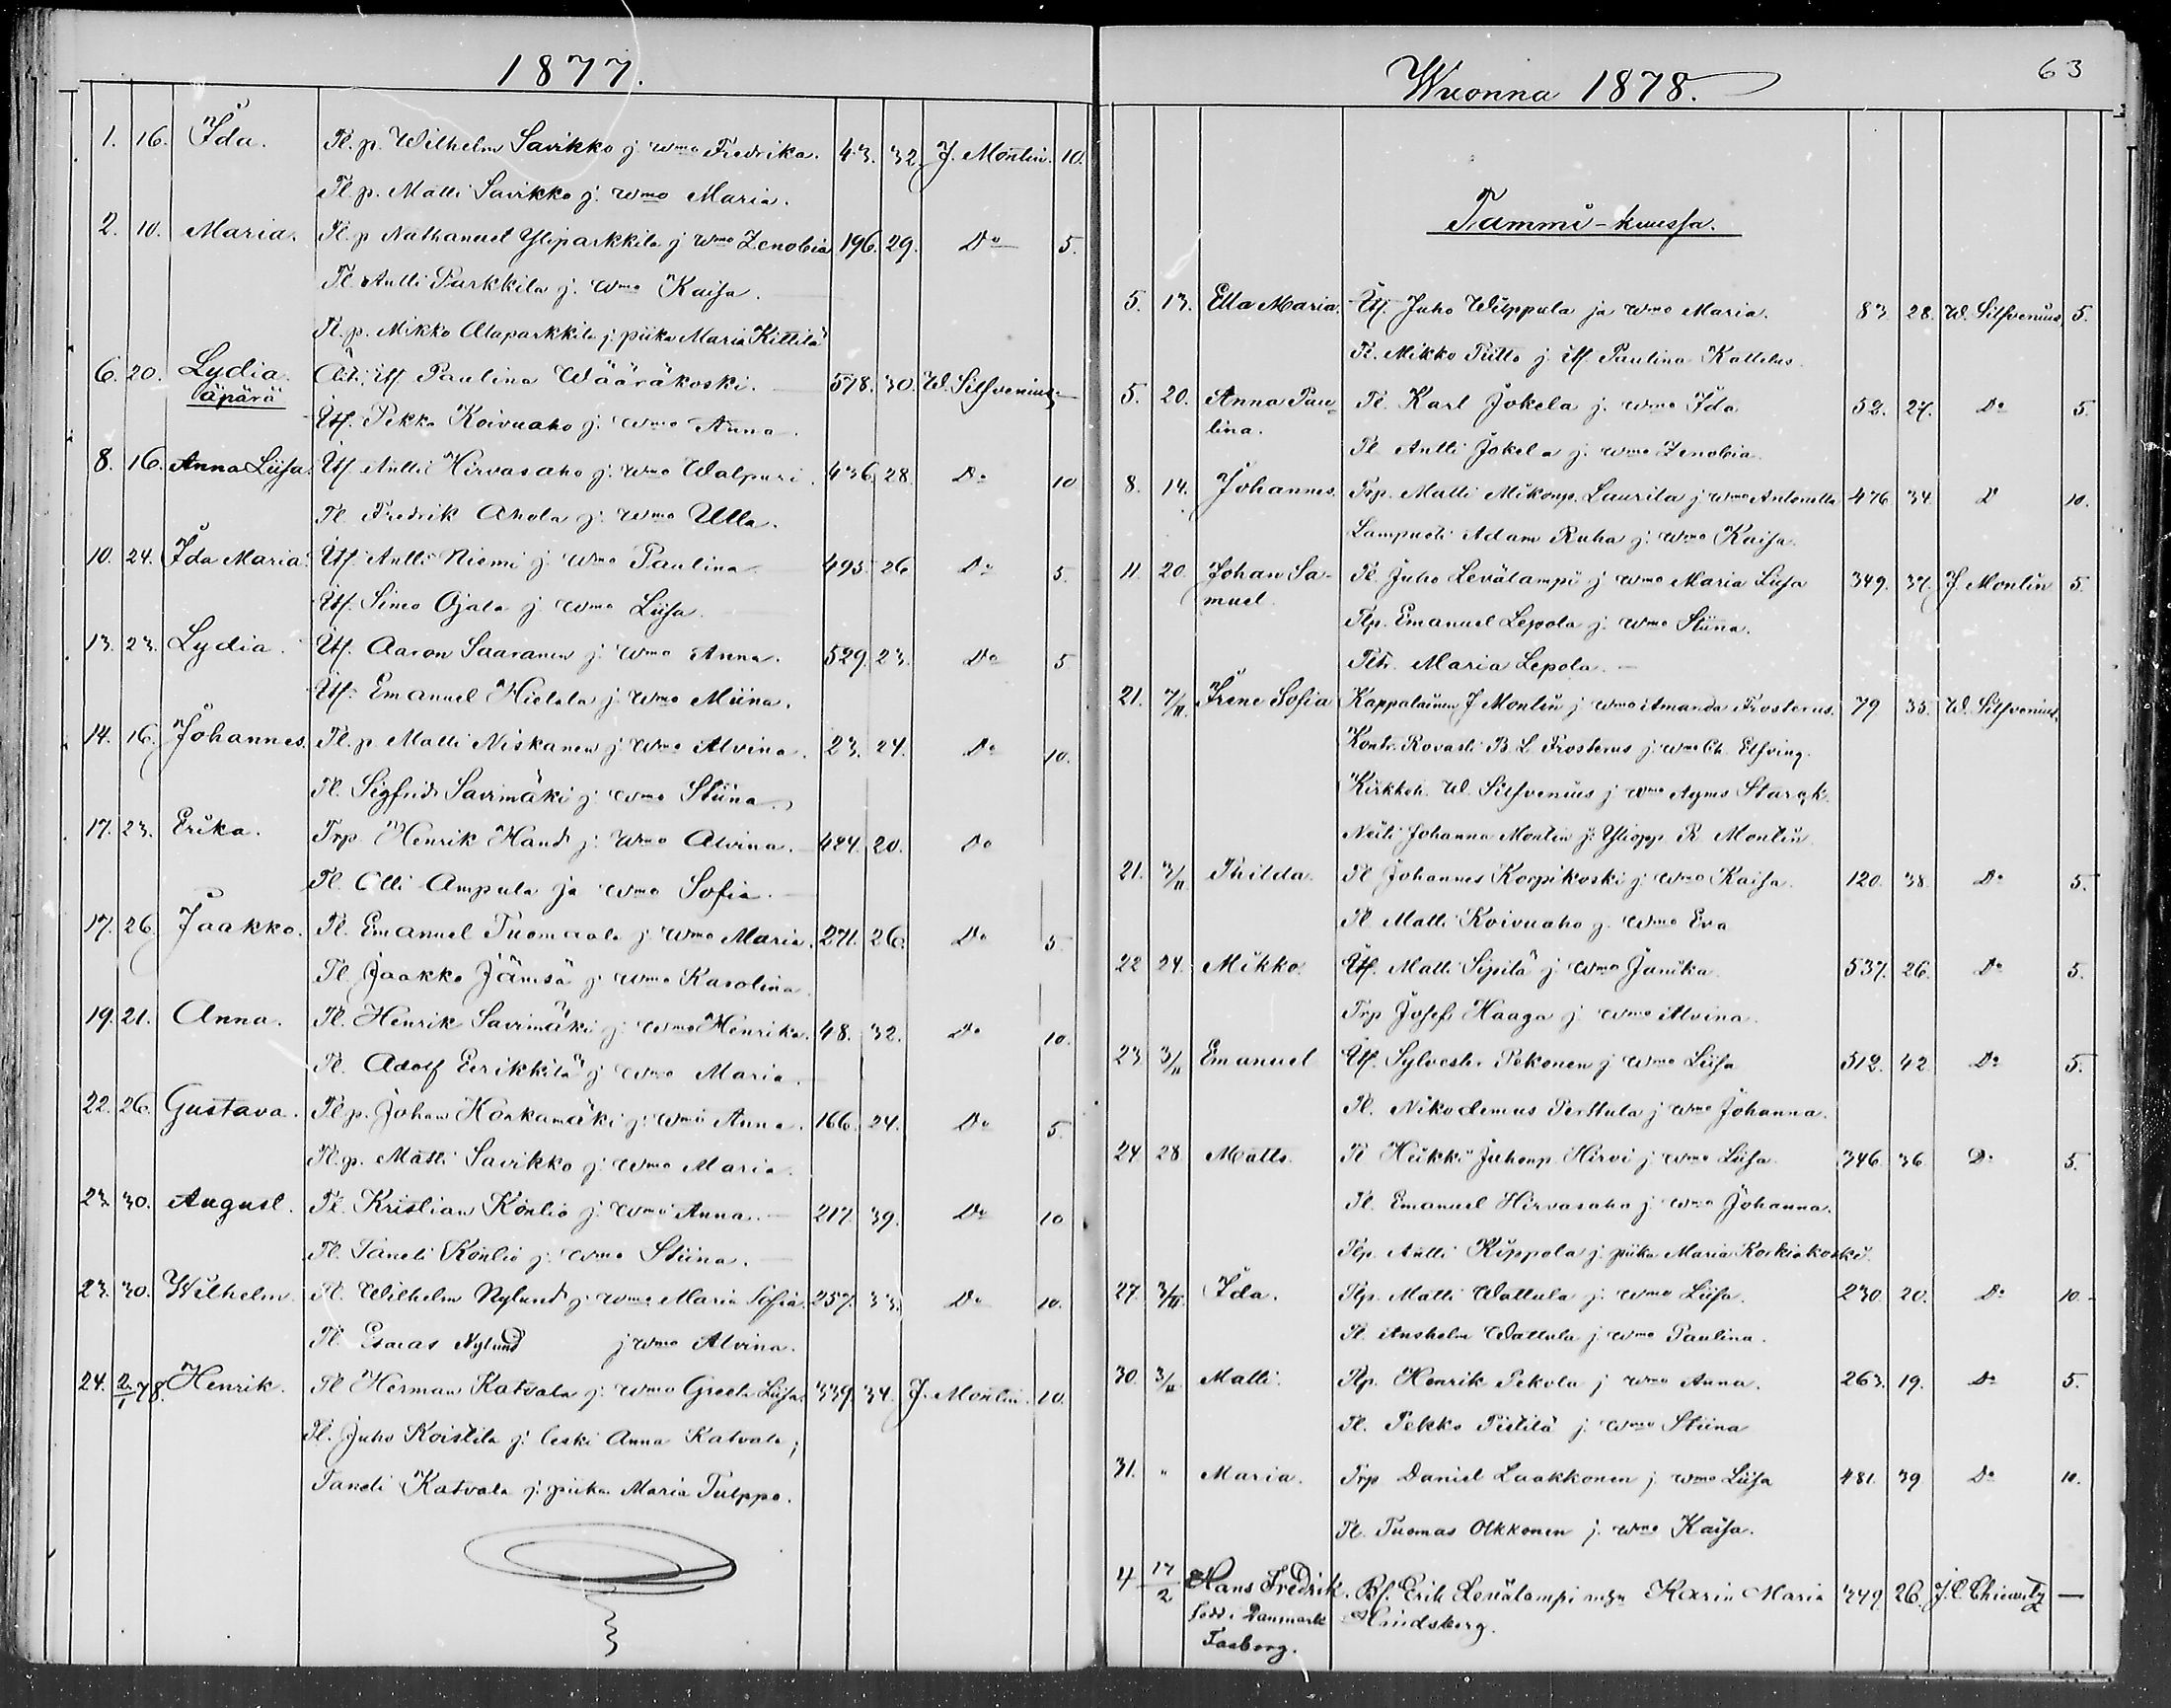 1877.
1. 16. Ida. Tl. p. Wilhelm Savikko j. wmo Fredrika. 43. 32. J. Montin. 10.
Tl. p. Matti Savikko j. wmo Maria.
2. 10. Maria. Tl. p Nathanael Yliparkkila j wmo Zenobia 196. 29. Do 5.
Tl. Antti Parkkila j. wmo Kaisa.
Tl. p. Mikko Alaparkkila j. piika Maria Kittilä
6. 20. Lydia. Äiti, Itf Paulina Wääräkoski. 578. 30. W. Silfvenius —
äpärä
Itf. Pekka Koivuaho j. wmo Anna.
8. 16. Anna Liisa. Itf Antti Hirvasaho j. wmo Walpuri. 436. 28. Do 10
Tl. Fredrik Ahola j. wmo Ulla.
10. 24. Ida Maria. Itf. Antti Niemi j. wmo Paulina. 495. 26 Do 5.
Itf. Simo Ojala j wmo Liisa.
13. 23. Lydia. Itf. Aaron Saaranen j. wmo Anna. 529. 23. Do 5
Itf. Emanuel Hietala j. wmo Miina.
14. 16. Johannes. Tl. p. Matti Niskanen j. wmo Alvina. 23. 24. Do 10.
Tl. Sigfrid Savimäki j. wmo Stiina.
17. 23. Erika. Trp Henrik Hand j. wmo Alvina. 424. 20. Do
Tl. Olli Ampula ja wmo Sofia.
17. 26. Jaakko. Tl. Emanuel Tuomaala j. wmo Maria. 271. 26. Do 5
Tl Jaakko Jämsä j. wmo Karolina.
19. 21. Anna. Tl. Henrik Savimäki j. wmo Henrika. 48. 32. Do 10.
Tl. Adolf Eerikkilä j wmo Maria.
22. 26. Gustava. Tl p. Johan Korkamäki j. wmo Anna. 166. 24. Do 5.
Tl. p. Matti Savikko j. wmo Maria.
23. 30. August. Tl. Kristian Köntiö j. wmo Anna. — 217. 39. Do 10
Tl. Taneli Köntiö j. wmo Stiina.
23. 30. Wilhelm. Tl. Wilhelm Nylund j. wmo Maria Sofia. 257. 33. Do 10.
Tl. Esaias Nylund j wmo Alvina.
24. 2/1 78. Henrik. Tl Herman Katvala j. wmo Greeta Liisa. 339. 34. J. Montin. 10.
Tl. Juho Koistila j. leski Anna Katvala;
Taneli Katvala j. piika Maria Tulppo.
63
Wuonna 1878.
Tammi-kuussa.
5. 13. Ella Maria. Itf. Juho Wilppula ja wmo Maria. 83 28. W. Silfvenius 5.
Tl. Mikko Piitto j. Itf Paulina Kattelus.
5. 20. Anna Pau- Tl. Karl Jokela j. wmo Ida 52. 27. Do 5.
lina.
Tl Antti Jokela j. wmo Zenobia.
8. 14. Johannes. Trp. Matti Mikonp. Laurila j wmo Antonetta 476 34. D 10.
Lampuoti Adam Ruha j. wmo Kaisa.
11. 20. Johan Sa- Tl. Juho Levälampi j wmo Maria Liisa 349. 37. J. Montin 5.
muel.
Tlp. Emanuel Lepola j. wmo Stiina.
Tltr. Maria Lepola. —
21. 7/II. Irene Sofia Kappalainen J Montin j wmo Amanda Frosterus. 79 35. W. Silfvenius
Kontr. Rovasti B. L. Frosterus j. wmo Ch. Elfving.
Kirkkoh. W. Silfvenius j wmo Agnes Starck.
Neiti Johanna Montin j. Yliopp. R. Montin.
21. 3/II Thilda. Tl Johannes Korpikoski j. wmo Kaisa. 120. 38. Do 5.
Tl Matti Koivuaho j. wmo Eva
22 24. Mikko. Itf. Matti Sipilä j. wmo Janika. 537. 26. Do 5.
Trp Josef Haaga j. wmo Alvina.
23 3/II Emanuel Itf. Sylvester Pekonen j wmo Liisa 512. 42 Do 5.
Tl. Nikodemus Perttula j wmo Johanna.
24 28 Matts. Tl Heikki Juhonp. Hirvi j wmo Liisa. 346 36 Do 5.
Tl. Emanuel Hirvasaho j. wmo Johanna.
Tlp. Antti Kippola j. piika Maria Koskiokoski.
27 3/II. Ida. Tlp. Matti Wattula j. wmo Liisa. 230 20. Do 10.
Tl. Anshelm Wattula j. wmo Paulina.
30. 3/II. Matti. Tlp. Henrik Pekola j wmo Anna. 263. 19. Do 5.
Tl. Pekka Piitilä j. wmo Stiina
31. " Maria. Trp Daniel Laakkonen j. wmo Liisa 481. 39 Do 10.
Tl. Tuomas Olkkonen j. wmo Kaisa.
4 17/2 Hans Fredrik. Bf. Erik Levälampi Karin Maria 349 26. J. C. Chiewitz —
född i Danmark Hindsberg.
Faaborg.